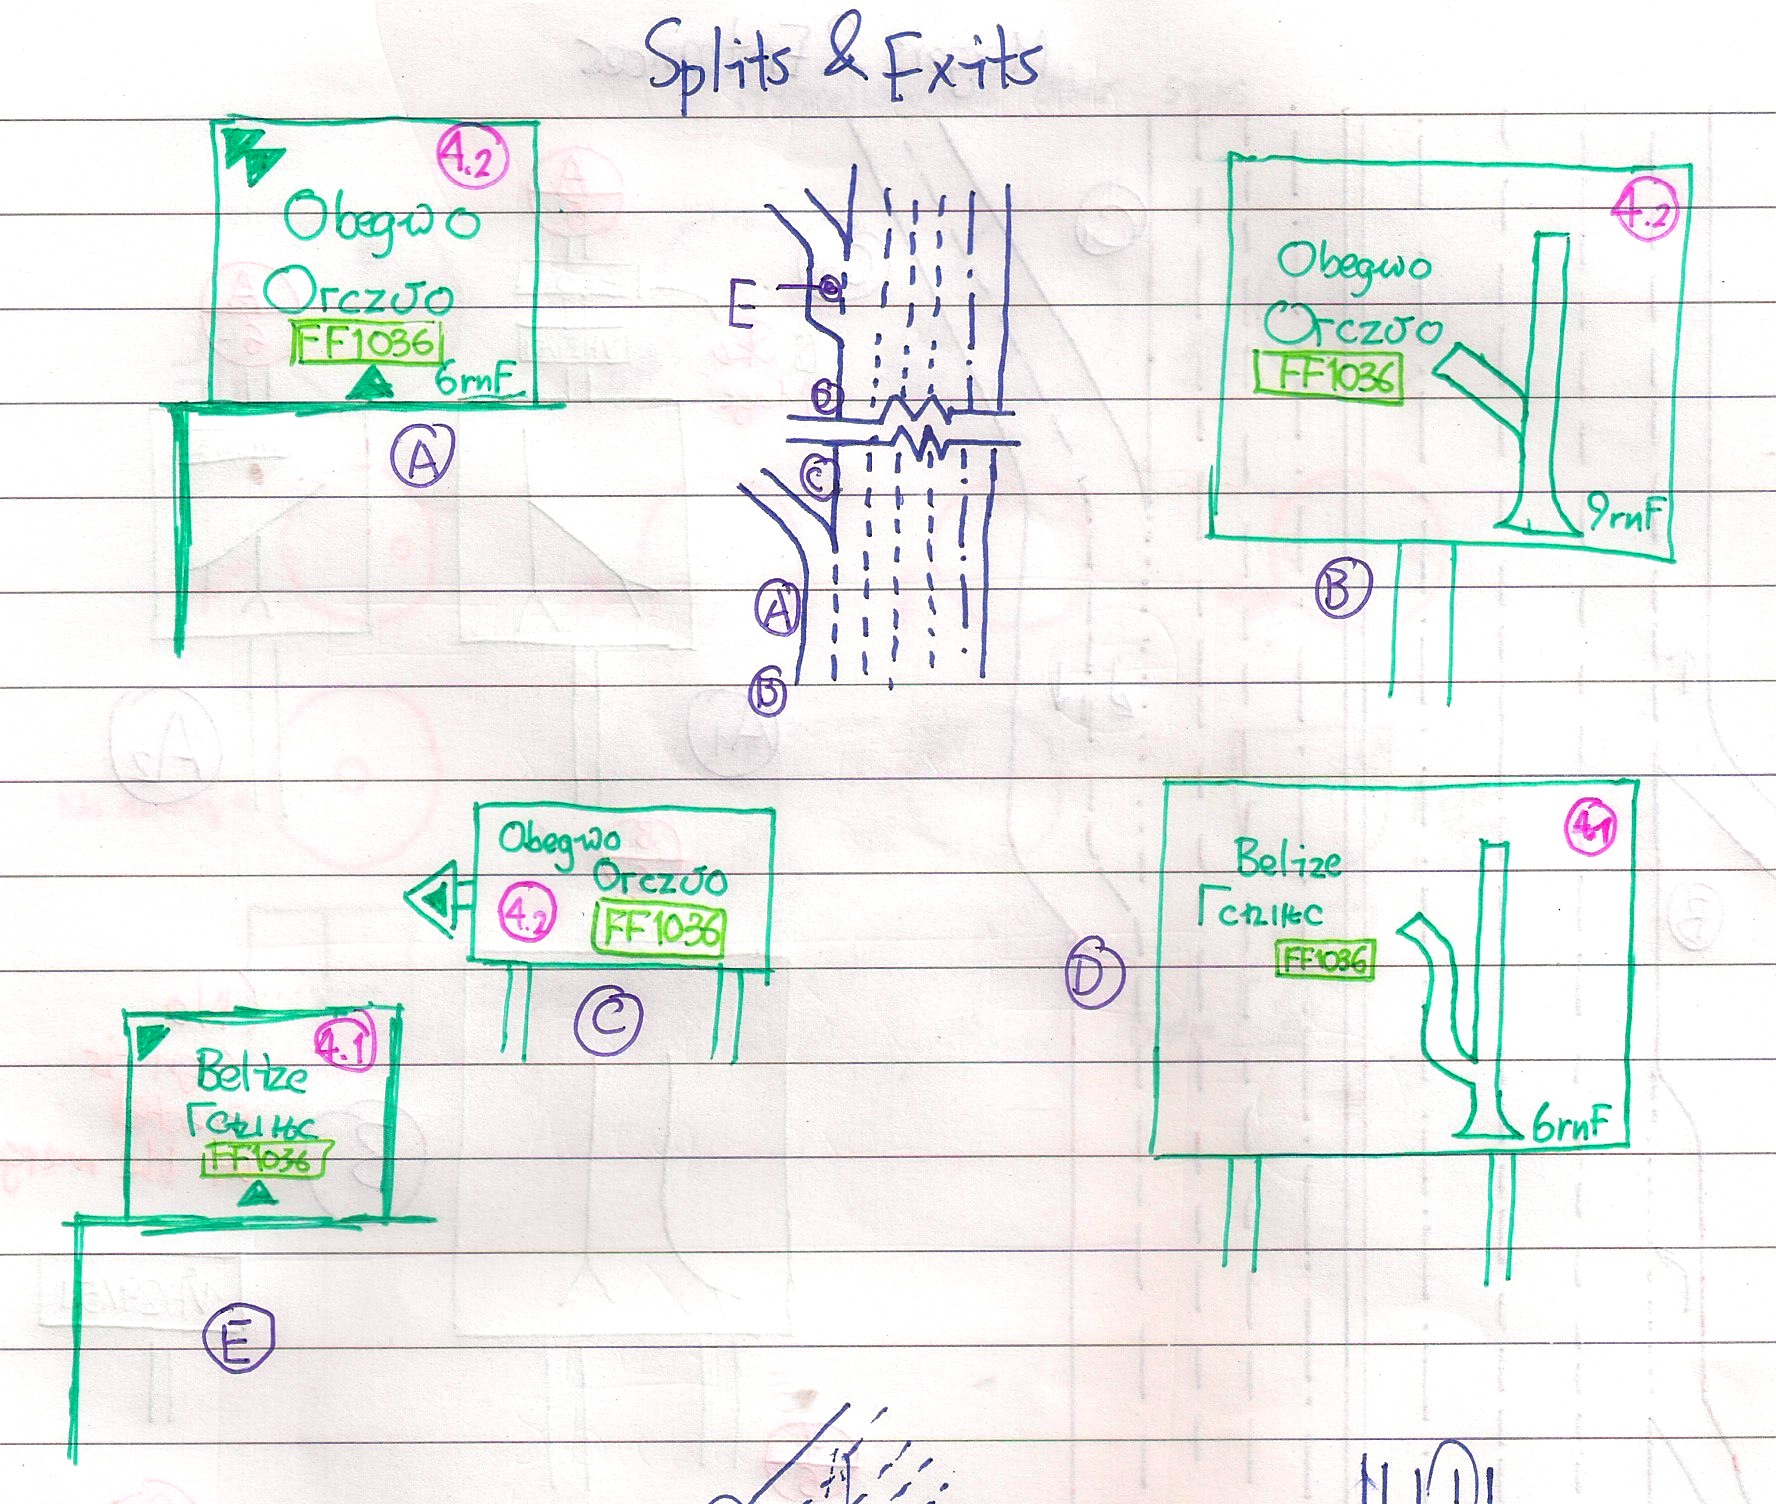 Splits & Exits
4.2
Obegwo
Orczyo
FF1036
6rnF
A
E
D
C
A
B
4.2
Obegwo
FF1036
9rnF
B
Obegwo
4.2
FF1036
C
4.1
Belize
FF1036
6rnF
D
4.1
Belize
FF1036
E